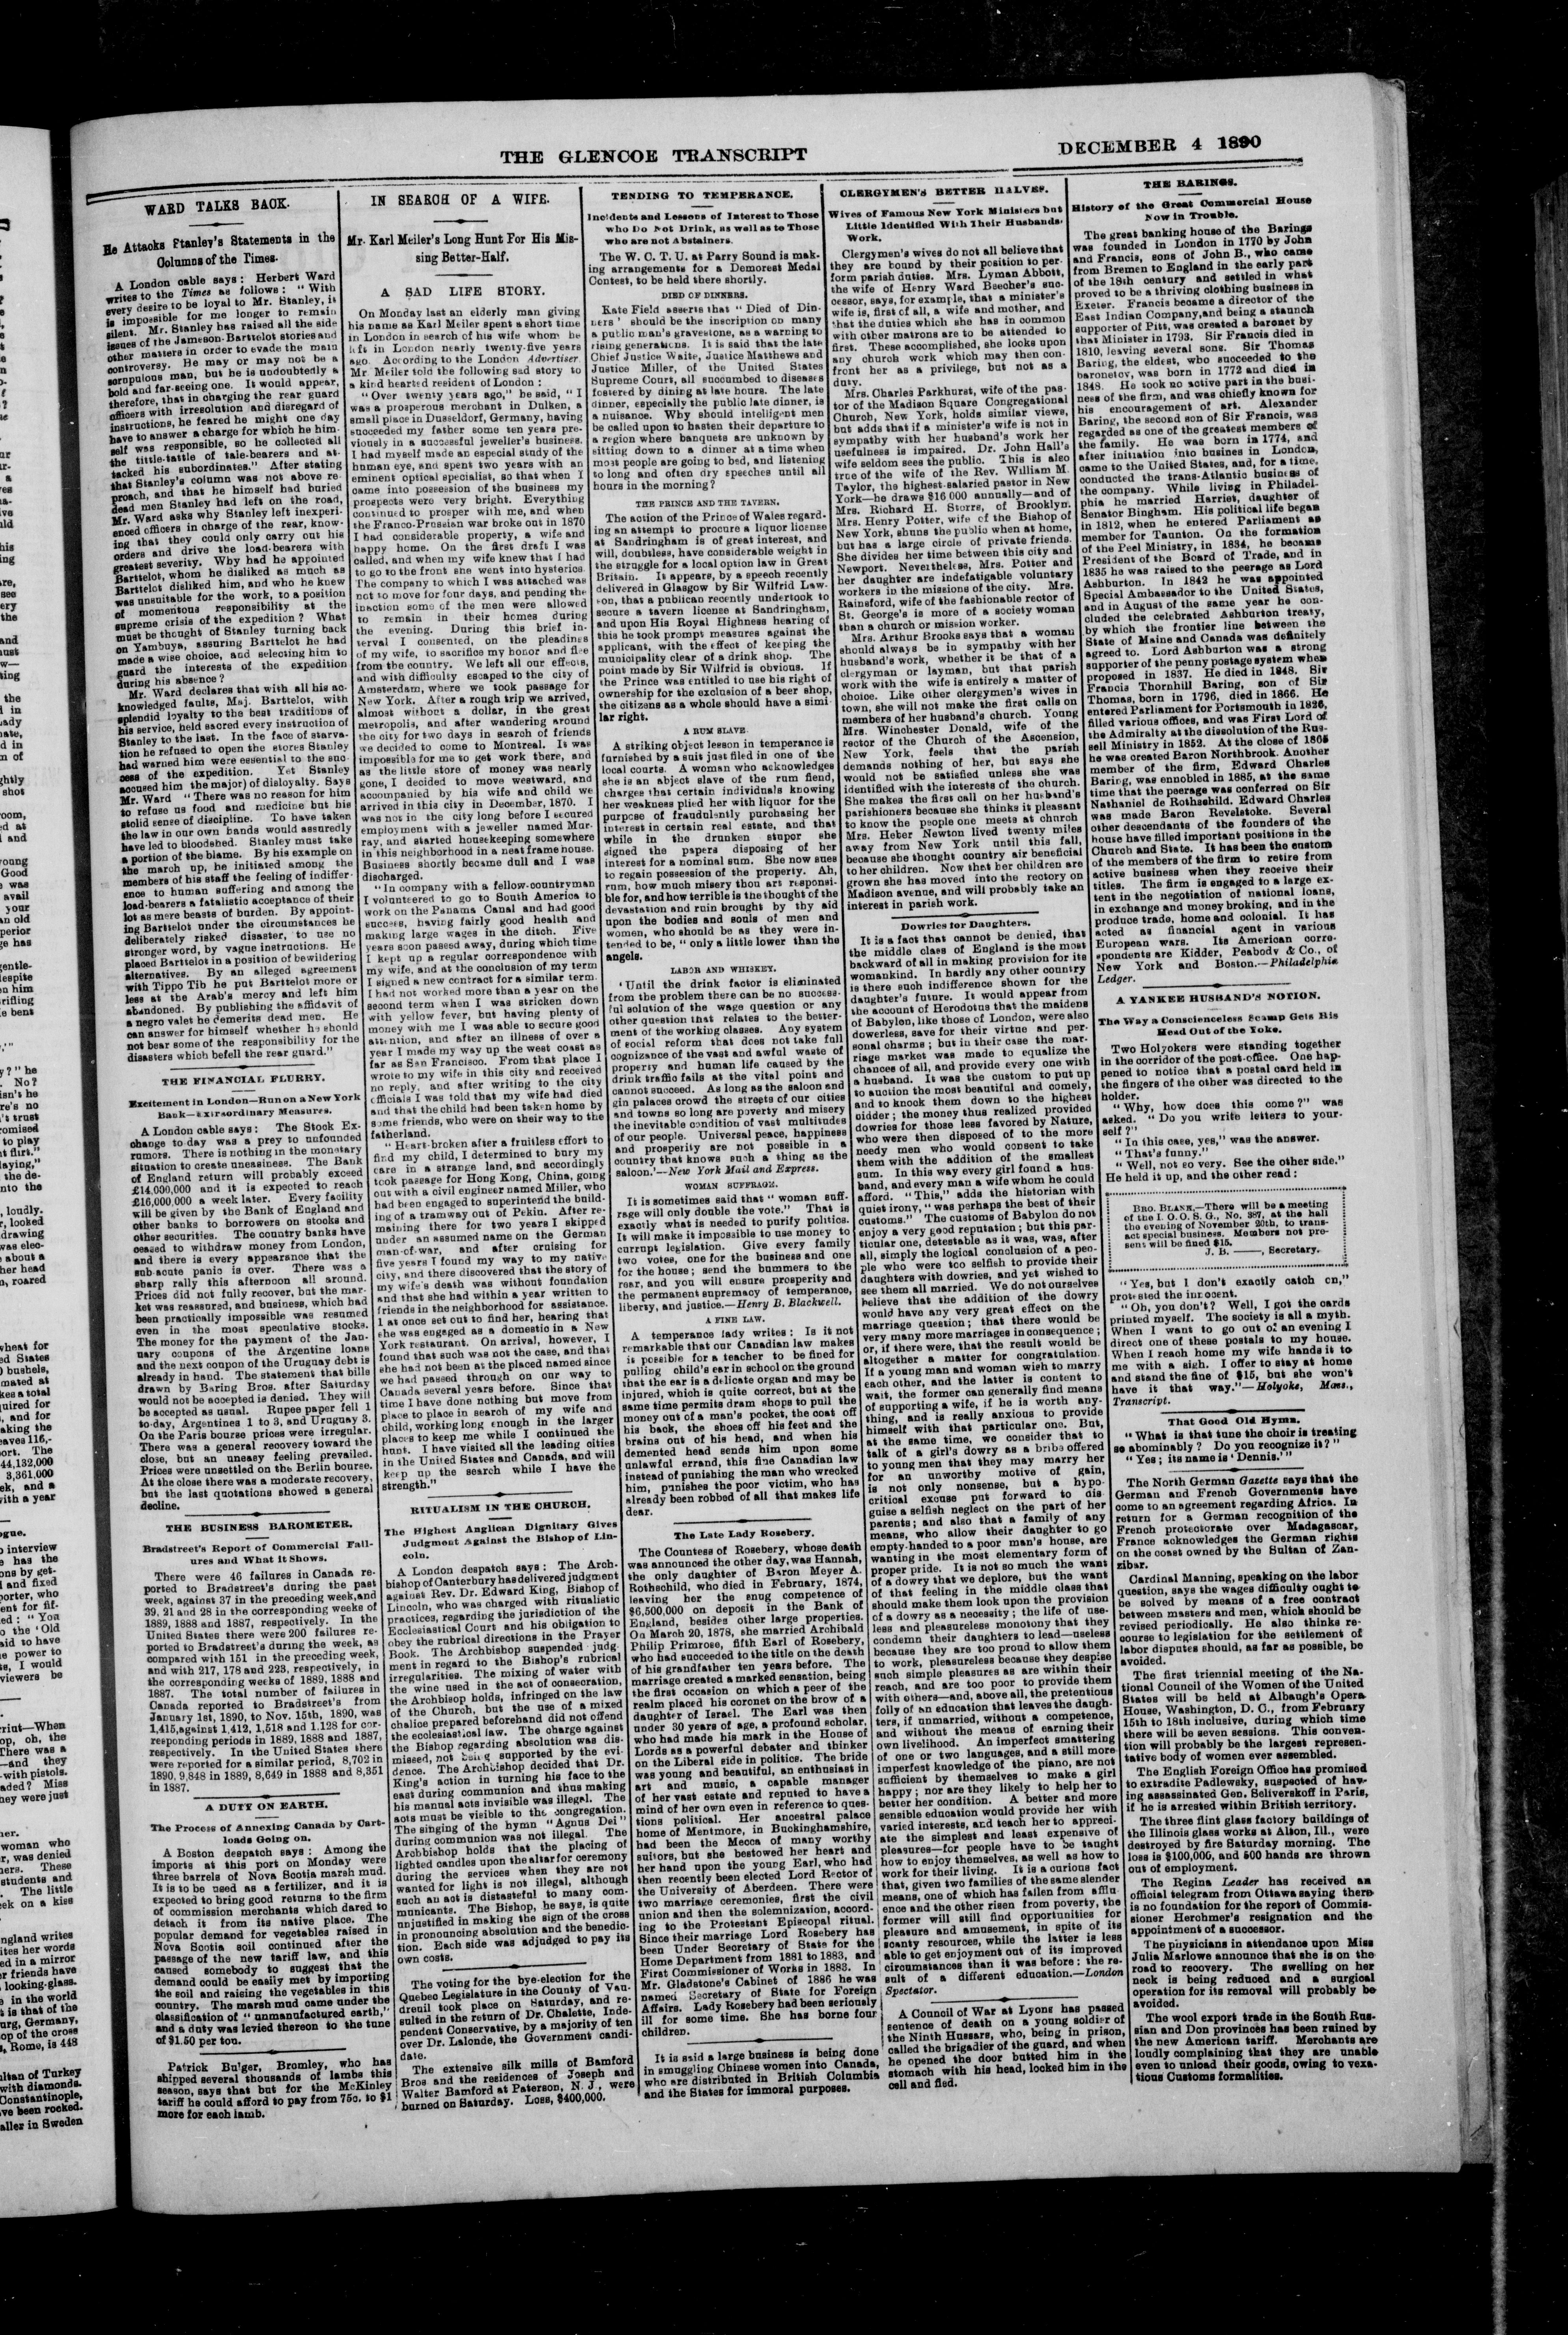 THE GLENCOE TRANSCRIPT
DECEMBER 4 1890
WARD TALKS BACK.
He Attacks Stanley's Statements in the
Columns of the Times.
A London cable says: Herbert Ward
writes to the Times as follows: "With
every desire to be loyal to Mr. Stanley, it
is impossible for me longer to remain
silent. Mr. Stanley has raised all the side
issues of the Jameson-Barttelot stories and
other matters in order to evade the main
controversy. He may or may not be a
scrupulous man, but he is undoubtedly a
bold and far-seeing one. It would appear,
therefore, that in charging the rear guard
officers with irresolution and disregard of
instructions, he feared he might one day
have to answer a charge for which he him-
self was responsible, so he collected all
the tittle-tattle of tale-bearers and at-
tacked his subordinates." After stating
that Stanley's column was not above re-
proach, and that he himself had buried
dead men Stanley had left on the road,
Mr. Ward asks why Stanley left inexperi-
enced officers in charge of the rear, know-
ing that they could only carry out his
orders and drive the load-bearers with
greatest severity. Why had he appointed
Barttelot, whom he disliked as much as
Barttelot disliked him, and who he knew
was unsuitable for the work, to a position
of momentous responsibility at the
supreme crisis of the expedition? What
must be thought of Stanley turning back
on Yambuya, assuring Barttelot he had
made a wise choice, and selecting him to
guard the interests of the expedition
during his absence?
Mr. Ward declares that with all his ac-
knowledged faults, Maj. Barttelot, with
splendid loyalty to the best traditions of
his service, held sacred every instruction of
Stanley to the last. In the face of starva-
tion he refused to open the stores Stanley
had warned him were essential to the suc-
cess of the expedition. Yet Stanley
accused him the major) of disloyalty. Says
Mr. Ward "There was no reason for him
to refuse us food and medicine but his
stolid sense of discipline. To have taken
the law in our own hands would assuredly
have led to bloodshed. Stanley must take
a portion of the blame. By his example on
the march up, he initiated among the
members of his staff the feeling of indiffer-
ence to human suffering and among the
load-bearers a fatalistic acceptance of their
lot as mere beasts of burden. By appoint-
ing Barttelot under the circumstances he
deliberately risked disaster, to use no
stronger word, by vague instructions. He
placed Barttelot in a position of bewildering
alternatives. By an alleged agreement
with Tippo Tib he put Barttelot more or
less at the Arab's mercy and left him
abandoned. By publishing the affidavit of
a negro valet he demerits dead men. He
can answer for himself whether he should
not bear some of the responsibility for the
disasters which befell the rear guard."
THE FINANCIAL FLURRY.
Excitement in London—Run on a New York
Bank—Extraordinary Measures.
A London cable says: The Stock Ex-
change to-day was a prey to unfounded
rumors. There is nothing in the monetary
situation to create uneasiness. The Bank
of England return will probably exceed
£14,000,000 and it is expected to reach
£16,000,000 a week later. Every facility
will be given by the Bank of England and
other banks to borrowers on stocks and
other securities. The country banks have
ceased to withdraw money from London,
and there is every appearance that the
sub-acute panic is over. There was a
sharp rally this afternoon all around.
Prices did not fully recover, but the mar-
ket was reassured, and business, which had
been practically impossible was resumed
even in the most speculative stocks.
The money for the payment of the Jan-
uary coupons of the Argentine loans
and the next coupon of the Uruguay debt is
already in hand. The statement that bills
drawn by Baring Bros. after Saturday
would not be accepted is denied. They will
be accepted as usual. Rupee paper fell 1
to-day, Argentines 1 to 3, and Uruguay 3.
On the Paris bourse prices were irregular.
There was a general recovery toward the
close, but an uneasy feeling prevailed.
Prices were unsettled on the Berlin bourse.
At the close there was a moderate recovery,
but the last quotations showed a general
decline.
THE BUSINESS BAROMETER.
Bradstreet's Report of Commercial Fail-
ures and What It Shows.
There were 46 failures in Canada re-
ported to Bradstreet's during the past
week, against 37 in the preceding week, and
39, 21 and 28 in the corresponding weeks of
1889, 1888 and 1887, respectively. In the
United States there were 200 failures re-
ported to Bradstreet's during the week, as
compared with 151 in the preceding week,
and with 217, 178 and 223, respectively, in
the corresponding weeks of 1889, 1888 and
1887. The total number of failures in
Canada reported to Bradstreet's from
January 1st, 1890, to Nov. 15th, 1890, was
1,415, against 1,412, 1,518 and 1,128 for cor-
responding periods in 1889, 1888 and 1887,
respectively. In the United States there
were reported for a similar period, 8,702 in
1890, 9,848 in 1889, 8,649 in 1888 and 8,351
in 1887.
A DUTY ON EARTH.
The Process of Annexing Canada by Cart-
loads Going on.
A Boston despatch says: Among the
imports at this port on Monday were
three barrels of Nova Scotia marsh mud.
It is to be used as a fertilizer, and it is
expected to bring good returns to the firm
of commission merchants which dared to
detach it from its native place. The
popular demand for vegetables raised in
Nova Scotia soil continued after the
passage of the new tariff law, and this
caused somebody to suggest that the
demand could be easily met by importing
the soil and raising the vegetables in this
country. The marsh mud came under the
classification of "unmanufactured earth,"
and a duty was levied thereon to the tune
of $1.50 per ton.
Patrick Bulger, Bromley, who has
shipped several thousands of lambs this
season, says that but for the McKinley
tariff he could afford to pay from 75c. to $1
more for each lamb.
IN SEARCH OF A WIFE.
Mr. Karl Meiler's Long Hunt For His Mis-
sing Better-Half.
A SAD LIFE STORY.
On Monday last an elderly man giving
his name as Karl Meiler spent a short time
in London in search of his wife whom he
left in London nearly twenty-five years
ago. According to the London Advertiser
Mr. Meiler told the following sad story to
a kind hearted resident of London:
"Over twenty years ago," he said, "I
was a prosperous merchant in Dulken, a
small place in Dusseldorf, Germany, having
succeeded my father some ten years pre-
viously in a successful jeweller's business.
I had myself made an especial study of the
human eye, and spent two years with an
eminent optical specialist, so that when I
came into possession of the business my
prospects were very bright. Everything
continued to prosper with me, and when
the Franco-Prussian war broke out in 1870
I had considerable property, a wife and
happy home. On the first draft I was
called, and when my wife knew that I had
to go to the front she went into hysterics.
The company to which I was attached was
not to move for four days, and pending the
inaction some of the men were allowed
to remain in their homes during
the evening. During this brief in-
terval I consented, on the pleadings
of my wife, to sacrifice my honor and flee
from the country. We left all our effects,
and with difficulty escaped to the city of
Amsterdam, where we took passage for
New York. After a rough trip we arrived,
almost without a dollar, in the great
metropolis, and after wandering around
the city for two days in search of friends
we decided to come to Montreal. It was
impossible for me to get work there, and
as the little store of money was nearly
gone, I decided to move westward, and
accompanied by his wife and child we
arrived in this city in December, 1870. I
was not in the city long before I secured
employment with a jeweller named Mur-
ray, and started housekeeping somewhere
in this neighborhood in a neat frame house.
Business shortly became dull and I was
discharged.
"In company with a fellow-countryman
I volunteered to go to South America to
work on the Panama Canal and had good
success, having fairly good health and
making large wages in the ditch. Five
years soon passed away, during which time
I kept up a regular correspondence with
my wife, and at the conclusion of my term
I signed a new contract for a similar term.
I had not worked more than a year on the
second term when I was stricken down
with yellow fever, but having plenty of
money with me I was able to secure good
attention, and after an illness of over a
year I made my way up the west coast as
far as San Francisco. From that place I
wrote to my wife in this city and received
no reply, and after writing to the city
officials I was told that my wife had died
and that the child had been taken home by
some friends, who were on their way to the
fatherland.
"Heart-broken after a fruitless effort to
find my child, I determined to bury my
care in a strange land, and accordingly
took passage for Hong Kong, China, going
out with a civil engineer named Miller, who
had been engaged to superintend the build-
ing of a tramway out of Pekin. After re-
maining there for two years I skipped
under an assumed name on the German
man-of-war, and after cruising for
five years I found my way to my native
city, and there discovered that the story of
my wife's death was without foundation
and that she had within a year written to
friends in the neighborhood for assistance.
I at once set out to find her, hearing that
she was engaged as a domestic in a New
York restaurant. On arrival, however, I
found that such was not the case, and that
she had not been at the placed named since
we had passed through on our way to
Canada several years before. Since that
time I have done nothing but move from
place to place in search of my wife and
child, working long enough in the larger
places to keep me while I continued the
hunt. I have visited all the leading cities
in the United States and Canada, and will
keep up the search while I have the
strength."
RITUALISM IN THE CHURCH.
The Highest Anglican Dignitary Gives
Judgment Against the Bishop of Lin-
coln.
A London despatch says: The Arch-
bishop of Canterbury has delivered judgment
against Rev. Dr. Edward King, Bishop of
Lincoln, who was charged with ritualistic
practices, regarding the jurisdiction of the
Ecclesiastical Court and his obligation to
obey the rubrical directions in the Prayer
Book. The Archbishop suspended judg-
ment in regard to the Bishop's rubrical
irregularities. The mixing of water with
the wine used in the act of consecration,
the Archbisop holds, infringed on the law
of the Church, but the use of a mixed
chalice prepared beforehand did not offend
the ecclesiastical law. The charge against
the Bishop regarding absolution was dis-
missed, not being supported by the evi-
dence. The Archbishop decided that Dr.
King's action in turning his face to the
east during communion and thus making
his manual acts invisible was illegal. The
acts must be visible to the congregation.
The singing of the hymn "Agnus Dei"
during communion was not illegal. The
Archbishop holds that the placing of
lighted candles upon the altar for ceremony
during the services when they are not
wanted for light is not illegal, although
such an act is distasteful to many com-
municants. The Bishop, he says, is quite
unjustified in making the sign of the cross
in pronouncing absolution and the benedic-
tion. Each side was adjudged to pay its
own costs.
The voting for the bye-election for the
Quebec Legislature in the County of Vau-
dreuil took place on Saturday, and re-
sulted in the return of Dr. Chalette, Inde-
pendent Conservative, by a majority of ten
over Dr. Lalonde, the Government candi-
date.
The extensive silk mills of Bamford
Bros and the residences of Joseph and
Walter Bamford at Paterson, N. J., were
burned on Saturday. Loss, $400,000.
TENDING TO TEMPERANCE.
Incidents and Lessons of Interest to Those
who Do Not Drink, as well as to Those
who are not Abstainers.
The W. C. T. U. at Parry Sound is mak-
ing arrangements for a Demorest Medal
Contest, to be held there shortly.
DIED OF DINNERS.
Kate Field asserts that "Died of Din-
ners' should be the inscription on many
a public man's gravestone, as a warning to
rising generations. It is said that the late
Chief Justice Waite, Justice Matthews and
Justice Miller, of the United States
Supreme Court, all succumbed to diseases
fostered by dining at late hours. The late
dinner, especially the public late dinner, is
a nuisance. Why should intelligent men
be called upon to hasten their departure to
a region where banquets are unknown by
sitting down to a dinner at a time when
most people are going to bed, and listening
to long and often dry speeches until all
hours in the morning?
THE PRINCE AND THE TAVERN.
The action of the Prince of Wales regard-
ing an attempt to procure a liquor license
at Sandringham is of great interest, and
will, doubtless, have considerable weight in
the struggle for a local option law in Great
Britain. It appears, by a speech recently
delivered in Glasgow by Sir Wilfrid Law-
son, that a publican recently undertook to
secure a tavern license at Sandringham,
and upon His Royal Highness hearing of
this he took prompt measures against the
applicant, with the effect of keeping the
municipality clear of a drink shop. The
point made by Sir Wilfrid is obvious. If
the Prince was entitled to use his right of
ownership for the exclusion of a beer shop,
the citizens as a whole should have a simi-
lar right.
A RUM SLAVE
A striking object lesson in temperance is
furnished by a suit just filed in one of the
local courts. A woman who acknowledges
she is an abject slave of the rum fiend,
charges that certain individuals knowing
her weakness plied her with liquor for the
purpose of fraudulently purchasing her
interest in certain real estate, and that
while in the drunken stupor she
signed the papers disposing of her
interest for a nominal sum. She now sues
to regain possession of the property. Ah,
rum, how much misery thou art responsi-
ble for, and how terrible is the thought of the
devastation and ruin brought by thy aid
upon the bodies and souls of men and
women, who should be as they were in-
tended to be, "only a little lower than the
angels.
LABOR AND WHISKEY.
'Until the drink factor is eliminated
from the problem there can be no success-
ful solution of the wage question or any
other question that relates to the better-
ment of the working classes. Any system
of social reform that does not take full
cognizance of the vast and awful waste of
property and human life caused by the
drink traffic fails at the vital point and
cannot succeed. As long as the saloon and
gin palaces crowd the streets of our cities
and towns so long are poverty and misery
the inevitable condition of vast multitudes
of our people. Universal peace, happiness
and prosperity are not possible in a
country that knows such a thing as the
saloon.'—New York Mail and Express.
WOMAN SUFFRAGE.
It is sometimes said that "woman suff-
rage will only double the vote." That is
exactly what is needed to purify politics.
It will make it impossible to manage by
currupt legislation. Give every family
two votes, one for the business and one
for the house; send the bummers to the
rear, and you will ensure prosperity and
the permanent supremacy of temperance,
liberty, and justice.—Henry B. Blackwell.
A FINE LAW.
A temperance lady writes: Is it not
remarkable that our Canadian law makes
is possible for a teacher to be fined for
pulling child's ear in school on the ground
that the ear is a delicate organ and may be
injured, which is quite correct, but at the
same time permits dram shops to pull the
money out of a man's pocket, the coat off
his back, the shoes off his feet and the
brains out of his head, and when his
demented head sends him upon some
unlawful errand, this fine Canadian law
instead of punishing the man who wrecked
him, punishes the poor victim, who has
already been robbed of all that makes life
dear.
The Late Lady Rosebery.
The Countess of Rosebery, whose death
was announced the other day, was Hannah,
the only daughter of Baron Meyer A.
Rothschild, who died in February, 1874,
leaving her the snug competence of
$6,500,000 on deposit in the Bank of
England, besides other large properties.
On March 20, 1878, she married Archibald
Philip Primrose, fifth Earl of Rosebery,
who had succeeded to the title on the death
of his grandfather ten years before. The
marriage created a marked sensation, being
the first occasion on which a peer of the
realm placed his coronet on the brow of a
daughter of Israel. The Earl was then
under 30 years of age, a profound scholar,
who had made his mark in the House of
Lords as a powerful debater and thinker
on the Liberal side in politics. The bride
was young and beautiful, an enthusiast in
art and music, a capable manager
of her vast estate and reputed to have a
mind of her own even in reference to ques-
tions political. Her ancestral palace
home of Mentmore, in Buckinghamshire,
had been the Mecca of many worthy
suitors, but she bestowed her heart and
her hand upon the young Earl, who had
then recently been elected Lord Rector of
the University of Aberdeen. There were
two marriage ceremonies, first the civil
union and then the solemnization, accord-
ing to the Protestant Episcopal ritual.
Since their marriage Lord Rosebery has
been Under Secretary of State for the
Home Department from 1881 to 1883, and
First Commissioner of Works in 1883. In
Mr. Gladstone's Cabinet of 1886 he was
named Secretary of State for Foreign
Affairs. Lady Rosebery had been seriously
ill for some time. She has borne four
children.
It is said a large business is being done
in smuggling Chinese women into Canada,
who are distributed in British Columbia
and the States for immoral purposes.
CLERGYMEN'S BETTER HALVES.
Wives of Famous New York Ministers but
Little Identified With Their Husbands'
Work.
Clergymen's wives do not all believe that
they are bound by their position to per-
form parish duties. Mrs. Lyman Abbott,
the wife of Henry Ward Beecher's suc-
cessor, says, for example, that a minister's
wife is, first of all, a wife and mother, and
that the duties which she has in common
with other matrons are to be attended to
first. These accomplished, she looks upon
any church work which may then con-
front her as a privilege, but not as a
duty.
Mrs. Charles Parkhurst, wife of the pas-
tor of the Madison Square Congregational
Church, New York, holds similar views,
but adds that if a minister's wife is not in
sympathy with her husband's work her
usefulness is impaired. Dr. John Hall's
wife seldom sees the public. This is also
true of the wife of the Rev. William M.
Taylor, the highest-salaried pastor in New
York—he draws $16,000 annually—and of
Mrs. Richard H. Storrs, of Brooklyn.
Mrs. Henry Potter, wife of the Bishop of
New York, shuns the public when at home,
but has a large circle of private friends.
She divides her time between this city and
Newport. Nevertheless, Mrs. Potter and
her daughter are indefatigable voluntary
workers in the missions of the city. Mrs.
Rainsford, wife of the fashionable rector of
St. George's is more of a society woman
than a church or mission worker.
Mrs. Arthur Brooks says that a woman
should always be in sympathy with her
husband's work, whether it be that of a
clergyman or layman, but that parish
work with the wife is entirely a matter of
choice. Like other clergymen's wives in
town, she will not make the first calls on
members of her husband's church. Young
Mrs. Winchester Donald, wife of the
rector of the Church of the Ascension,
New York, feels that the parish
demands nothing of her, but says she
would not be satisfied unless she was
identified with the interests of the church.
She makes the first call on her husband's
parishioners because she thinks it pleasant
to know the people one meets at church
Mrs. Heber Newton lived twenty miles
away from New York until this fall,
because she thought country air beneficial
to her children. Now that her children are
grown she has moved into the rectory on
Madison avenue, and will probably take an
interest in parish work.
Dowries for Daughters.
It is a fact that cannot be denied, that
the middle class of England is the most
backward of all in making provision for its
womankind. In hardly any other country
is there such indifference shown for the
daughter's future. It would appear from
the account of Herodotus that the maidens
of Babylon, like those of London, were also
dowerless, save for their virtue and per-
sonal charms; but in their case the mar-
riage market was made to equalize the
chances of all, and provide every one with
a husband. It was the custom to put up
to auction the most beautiful and comely,
and to knock them down to the highest
bidder; the money thus realized provided
dowries for those less favored by Nature,
who were then disposed of to the more
needy men who would consent to take
them with the addition of the smallest
sum. In this way every girl found a hus-
band, and every man a wife whom he could
afford. "This," adds the historian with
quiet irony, "was perhaps the best of their
customs." The customs of Babylon do not
enjoy a very good reputation; but this par-
ticular one, detestable as it was, was, after
all, simply the logical conclusion of a peo-
ple who were too selfish to provide their
daughters with dowries, and yet wished to
see them all married. We do not ourselves
believe that the addition of the dowry
would have any very great effect on the
marriage question; that there would be
very many more marriages in consequence;
or, if there were, that the result would be
altogether a matter for congratulation.
If a young man and woman wish to marry
each other, and the latter is content to
wait, the former can generally find means
of supporting a wife, if he is worth any-
thing, and is really anxious to provide
himself with that particular one. But,
at the same time, we consider that to
talk of a girl's dowry as a bribe offered
to young men that they may marry her
for an unworthy motive of gain,
is not only nonsense, but a hypo-
critical excuse put forward to dis-
guise a selfish neglect on the part of her
parents; and also that a family of any
means, who allow their daughter to go
empty-handed to a poor man's house, are
wanting in the most elementary form of
proper pride. It is not so much the want
of a dowry that we deplore, but the want
of that feeling in the middle class that
should make them look upon the provision
of a dowry as a necessity; the life of use-
less and pleasureless monotony that they
condemn their daughters to lead—useless
because they are too proud to allow them
to work, pleasureless because they despise
such simple pleasures as are within their
reach, and are too poor to provide them
with others—and, above all, the pretentious
folly of an education that leaves the daugh-
ters, if unmarried, without a competence,
and without the means of earning their
own livelihood. An imperfect smattering
of one or two languages, and a still more
imperfect knowledge of the piano, are not
sufficient by themselves to make a girl
happy; nor are they likely to help her to
better her condition. A better and more
sensible education would provide her with
varied interests, and teach her to appreci-
ate the simplest and least expensive of
pleasures—for people have to be taught
how to enjoy themselves, as well as how to
work for their living. It is a curious fact
that, given two families of the same slender
means, one of which has fallen from afflu-
ence and the other risen from poverty, the
former will still find opportunities for
pleasure and amusement, in spite of its
scanty resources, while the latter is less
able to get enjoyment out of its improved
circumstances than it was before: the re-
sult of a different education.—London
Spectator.
A Council of War at Lyons has passed
sentence of death on a young soldier of
the Ninth Hussars, who, being in prison,
called the brigadier of the guard, and when
he opened the door butted him in the
stomach with his head, locked him in the
cell and fled.
THE BARINGS.
History of the Great Commercial House
Now in Trouble.
The great banking house of the Barings
was founded in London in 1770 by John
and Francis, sons of John B., who came
from Bremen to England in the early part
of the 18th century and settled in what
proved to be a thriving clothing business in
Exeter. Francis became a director of the
East Indian Company, and being a staunch
supporter of Pitt, was created a baronet by
that Minister in 1793. Sir Francis died in
1810, leaving several sons. Sir Thomas
Baring, the eldest, who succeeded to the
baronetcy, was born in 1772 and died in
1848. He took no active part in the busi-
ness of the firm, and was chiefly known for
his encouragement of art. Alexander
Baring, the second son of Sir Francis, was
regarded as one of the greatest members of
the family. He was born in 1774, and
after initiation into busines in London,
came to the United States, and, for a time,
conducted the trans-Atlantic business of
the company. While living in Philadel-
phia he married Harriet, daughter of
Senator Bingham. His political life began
in 1812, when he entered Parliament as
member for Taunton. On the formation
of the Peel Ministry, in 1834, he became
President of the Board of Trade, and in
1835 he was raised to the peerage as Lord
Ashburton. In 1842 he was appointed
Special Ambassador to the United States,
and in August of the same year he con-
cluded the celebrated Ashburton treaty,
by which the frontier line between the
State of Maine and Canada was definitely
agreed to. Lord Ashburton was a strong
supporter of the penny postage system when
proposed in 1837. He died in 1848. Sir
Francis Thornhill Baring, son of Sir
Thomas, born in 1796, died in 1866. He
entered Parliament for Portsmouth in 1826,
filled various offices, and was First Lord of
the Admiralty at the dissolution of the Rus-
sell Ministry in 1852. At the close of 1865
he was created Baron Northbrook. Another
member of the firm, Edward Charles
Baring, was ennobled in 1885, at the same
time that the peerage was conferred on Sir
Nathaniel de Rothschild. Edward Charles
was made Baron Revelstoke. Several
other descendants of the founders of the
house have filled important positions in the
Church and State. It has been the custom
of the members of the firm to retire from
active business when they receive their
titles. The firm is engaged to a large ex-
tent in the negotiation of national loans,
in exchange and money broking, and in the
produce trade, home and colonial. It has
acted as financial agent in various
European wars. Its American corre-
spondents are Kidder, Peabody & Co., of
New York and Boston.—Philadelphia
Ledger.
A YANKEE HUSBAND'S NOTION.
The Way a Conscienceless Scamp Gets His
Head Out of the Yoke.
Two Holyokers were standing together
in the corridor of the post-office. One hap-
pened to notice that a postal card held in
the fingers of the other was directed to the
holder.
"Why, how does this come?" was
asked. "Do you write letters to your-
self?"
"In this case, yes," was the answer.
"That's funny."
"Well, not so very. See the other side."
He held it up, and the other read:
BRO. BLANK.—There will be a meeting
of the I. O. O. S. G., No. 387, at the hall
the evening of November 20th, to trans-
act special business. Members not pre-
sent will be fined $15.
J. B. ——, Secretary.
"Yes, but I don't exactly catch on,"
protested the innocent.
"Oh, you don't? Well, I got the cards
printed myself. The society is all a myth.
When I want to go out of an evening I
direct one of these postals to my house.
When I reach home my wife hands it to
me with a sigh. I offer to stay at home
and stand the fine of $15, but she won't
have it that way."—Holyoke, Mass.,
Transcript.
That Good Old Hymn.
"What is that tune the choir is treating
so abominably? Do you recognize it?"
"Yes; its name is 'Dennis.'"
The North German Gazette says that the
German and French Governments have
come to an agreement regarding Africa. In
return for a German recognition of the
French protectorate over Madagascar,
France acknowledges the German rights
on the coast owned by the Sultan of Zan-
zibar.
Cardinal Manning, speaking on the labor
question, says the wages difficulty ought to
be solved by means of a free contract
between masters and men, which should be
revised periodically. He also thinks re-
course to legislation for the settlement of
labor disputes should, as far as possible, be
avoided.
The first triennial meeting of the Na-
tional Council of the Women of the United
States will be held at Albaugh's Opera
House, Washington, D. C., from February
15th to 18th inclusive, during which time
there will be seven sessions. This conven-
tion will probably be the largest represen-
tative body of women ever assembled.
The English Foreign Office has promised
to extradite Padlewsky, suspected of hav-
ing assassinated Gen. Seliverskoff in Paris,
if he is arrested within British territory.
The three flint glass factory buildings of
the Illinois glass works at Alson, Ill., were
destroyed by fire Saturday morning. The
loss is $100,000, and 500 hands are thrown
out of employment.
The Regina Leader has received an
official telegram from Ottawa saying there
is no foundation for the report of Commis-
sioner Herchmer's resignation and the
appointment of a successor.
The physicians in attendance upon Miss
Julia Marlowe announce that she is on the
road to recovery. The swelling on her
neck is being reduced and a surgical
operation for its removal will probably be
avoided.
The wool export trade in the South Rus-
sian and Don provinces has been ruined by
the new American tariff. Merchants are
loudly complaining that they are unable
even to unload their goods, owing to vexa-
tious Customs formalities.